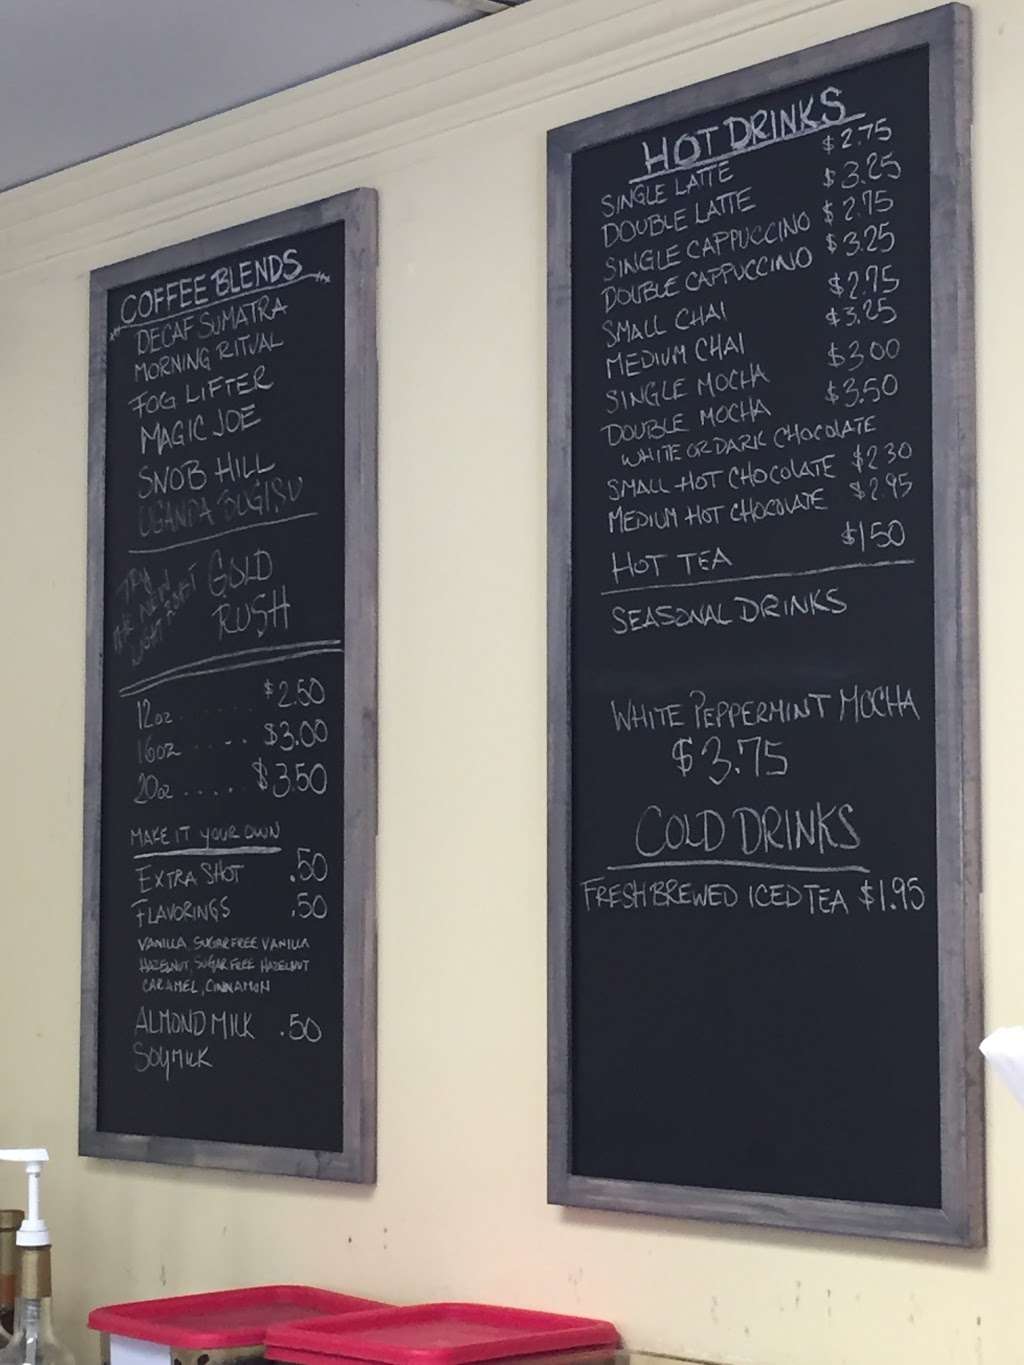 COFFEE BLENDS
DECAF SUMATRA
MORNING RITUAL
FOG LIFTER
MAGIC JOE
SNOB HILL
UGANDA BUGISU
TRY
THE NEW
LIGHT ROAST
GOLD
RUSH
12oz ...... $2.50
16oz ..... $3.00
20oz ..... $3.50
MAKE IT YOUR OWN
EXTRA SHOT .50
FLAVORINGS .50
VANILLA, SUGAR FREE VANILLA
HAZELNUT, SUGAR FREE HAZELNUT
CARAMEL, CINNAMON
ALMOND MILK .50
SOYMILK
HOT DRINKS
SINGLE LATTE $2.75
DOUBLE LATTE $3.25
SINGLE CAPPUCCINO $2.75
DOUBLE CAPPUCCINO $3.25
SMALL CHAI $2.75
MEDIUM CHAI $3.25
SINGLE MOCHA $3.00
DOUBLE MOCHA $3.50
WHITE OR DARK CHOCOLATE
SMALL HOT CHOCOLATE $2.30
MEDIUM HOT CHOCOLATE $2.95
HOT TEA $1.50
SEASONAL DRINKS
WHITE PEPPERMINT MOCHA
$3.75
COLD DRINKS
FRESH BREWED ICED TEA $1.95